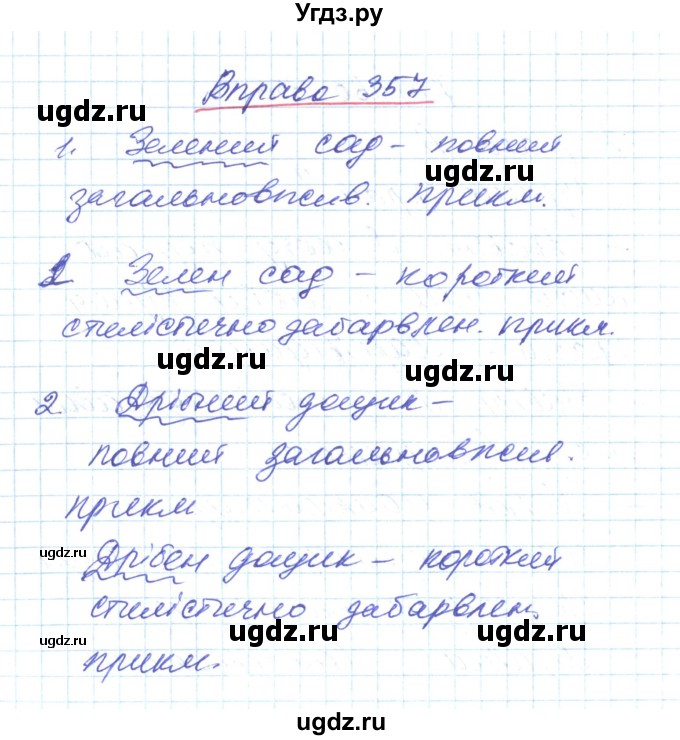 Угдз.ру
Вправа 357
ugdz.ru
1. Зелений сад - повний
ugdz.ru
загальновжив. прикм.
1 Зелен сад - короткий
стилістично забарвлен. прикм.
ugdz.ru ugdz.ru
2 Дрібний дощик -
повний загальновжив.
прикм
ugdz.ru
Дрібен дощик - короткий
ugdz.ru
стилістично забарвлен.
ugdz.ru ugdz.ru ugdz.ru
прикм.
ugdz.ru